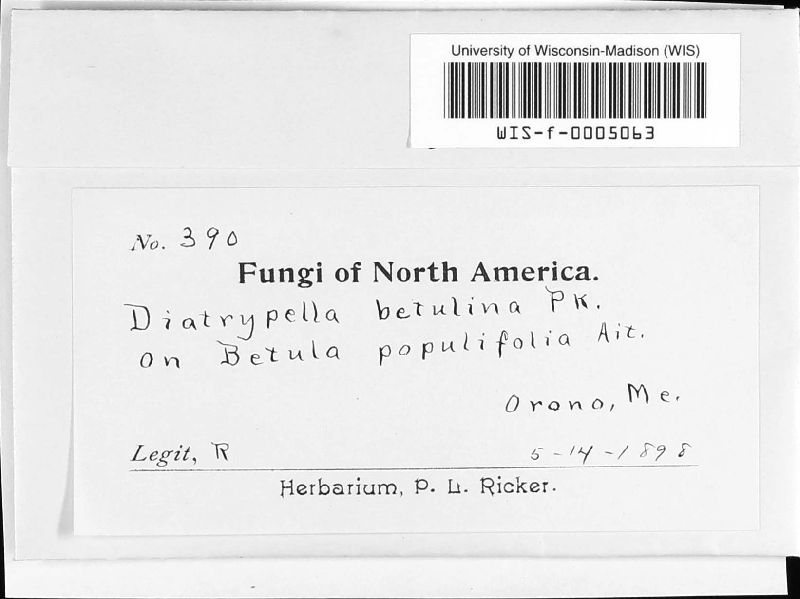 University of Wisconsin-Madison (WIS)
WIS-f-0005063
No. 390
Fungi of North America.
Diatrypella betulina Pk.
on Betula populifolia Ait.
Orono, Me.
Legit, R 5-14-1898
Herbarium, P. L. Ricker.